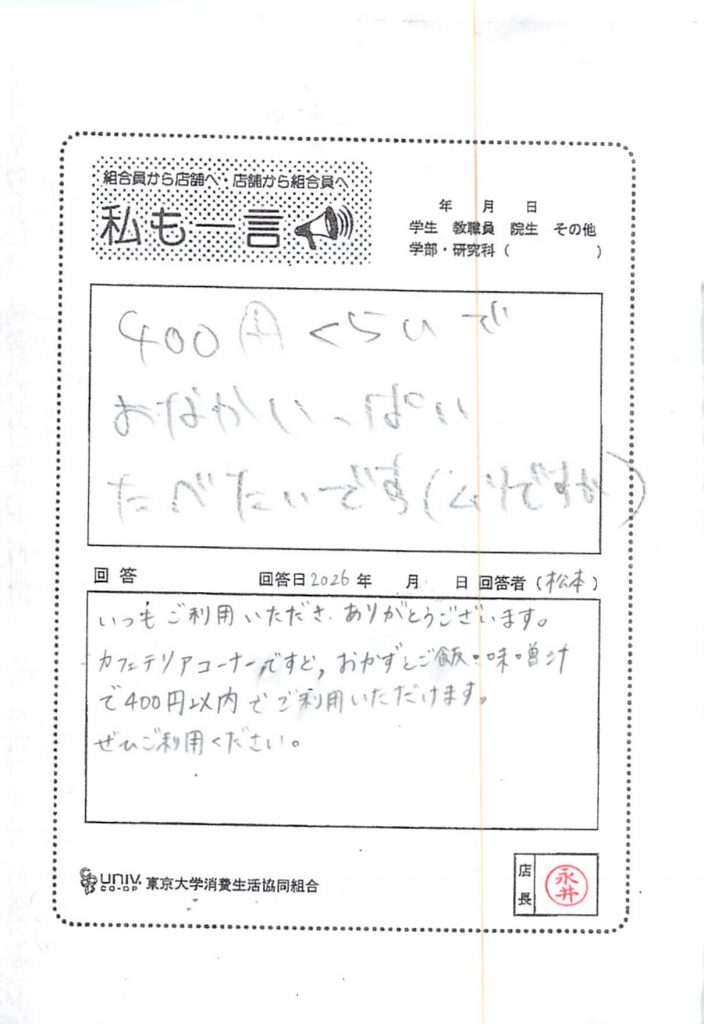 組合員から店舗へ・店舗から組合員へ
私も一言
年 月 日
学生 教職員 院生 その他
学部・研究科 ( )
400円くらいで
おなかいっぱい
たべたいです
回答
回答日2026年 月 日 回答者 (松本)
いつもご利用いただき、ありがとうございます。
カフェテリアコーナーですと、おかずとご飯・味噌汁
で400円以内でご利用いただけます。
ぜひご利用ください。
UNIV. CO-OP 東京大学消費生活協同組合
店長
永井